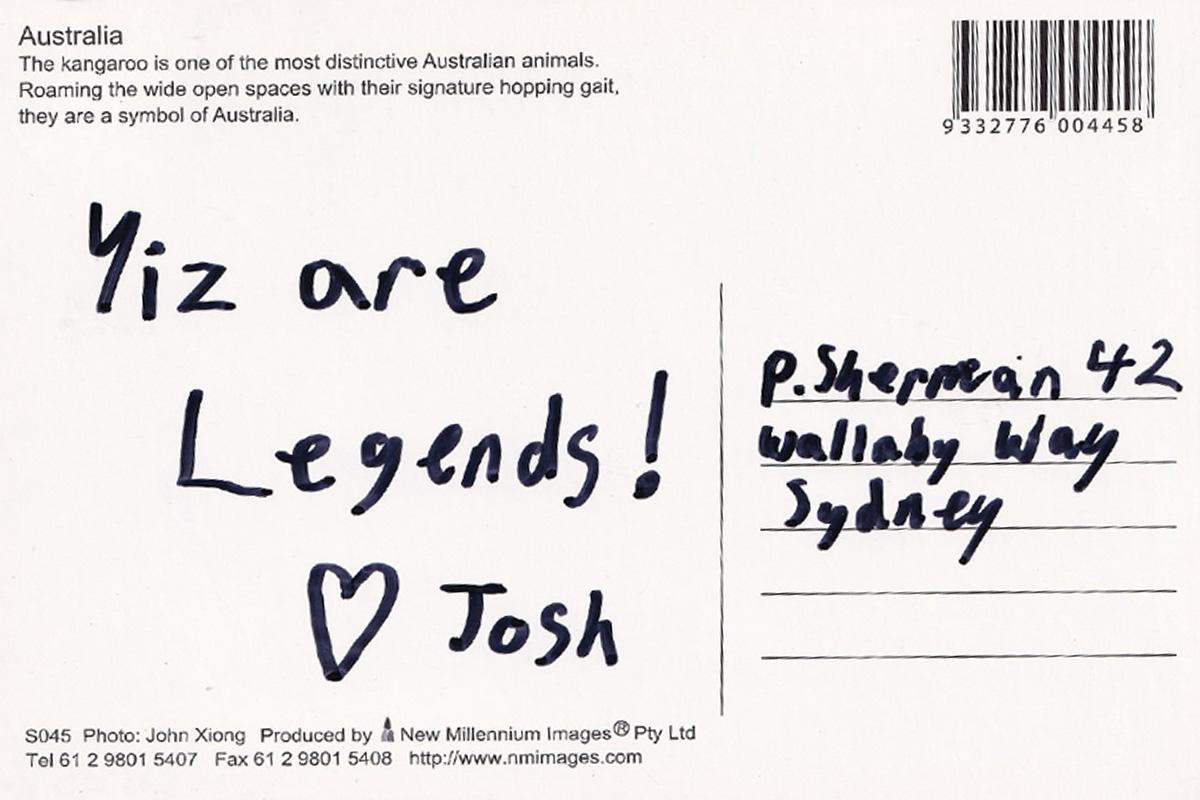 Australia
The kangaroo is one of the most distinctive Australian animals.
Roaming the wide open spaces with their signature hopping gait,
they are a symbol of Australia.
9 332776 004458
Yiz are
Legends!
♡ Josh
P. Sherman 42
Wallaby Way
Sydney
S045 Photo: John Xiong Produced by New Millennium Images® Pty Ltd
Tel 61 2 9801 5407 Fax 61 2 9801 5408 http://www.nmimages.com